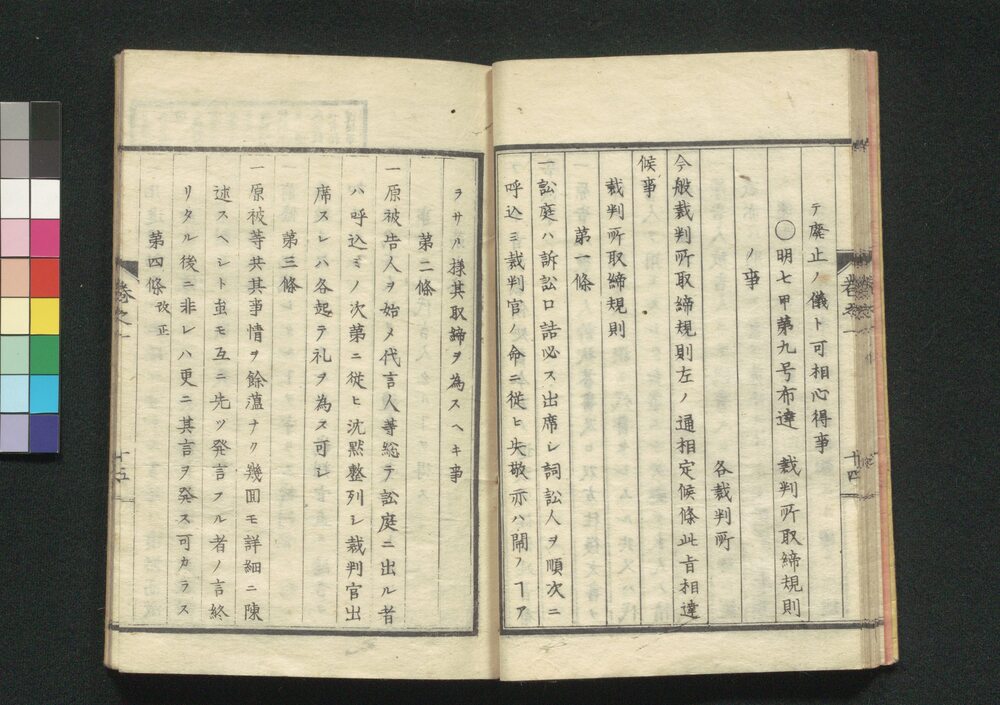 テ廃止ノ儀ト可相心得事
〇明七甲第九号布達　裁判所取締規則
ノ事
各裁判所
今般裁判所取締規則左ノ通相定候條此旨相達
候事
裁判所取締規則
第一條
一訟庭ハ訴訟口詰必ス出席シ詞訟人ヲ順次ニ
呼込ミ裁判官ノ命ニ従ヒ失敬亦ハ閙ノヿア
ラサル様其取締ヲ為スヘキ事
第二條
一原被告人ヲ始メ代言人等総テ訟庭ニ出ル者
ハ呼込ミノ次第ニ従ヒ沈黙整列シ裁判官出
席スレハ各起テ礼ヲ為ス可シ
第三條
一原被等共其事情ヲ餘薀ナク幾囬モ詳細ニ陳
述スヘシト虽モ互ニ先ツ発言フル者ノ言終
リタル後ニ非レハ更ニ其言ヲ発ス可カラス
第四條改正
十四
十五